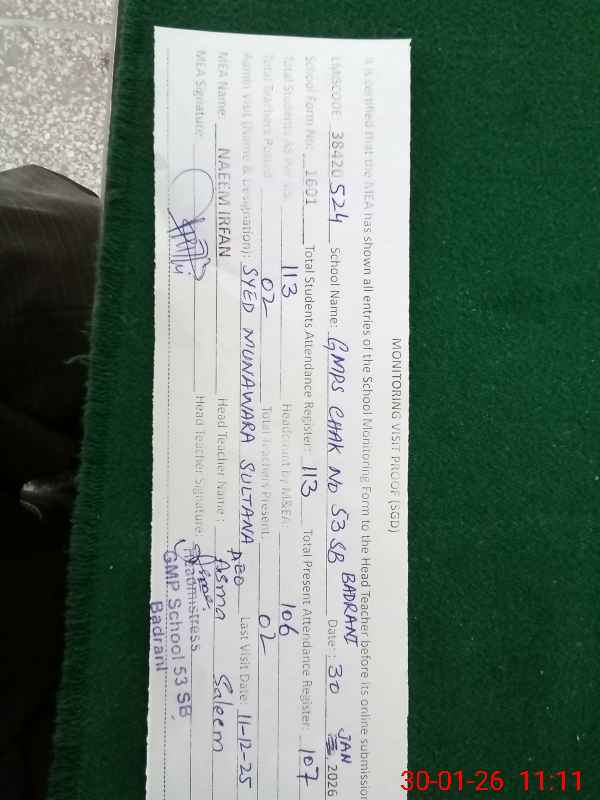 MONITORING VISIT PROOF (SGD)
It is certified that the MEA has shown all entries of the School Monitoring Form to the Head Teacher before its online submission
EMISCODE 38420524 School Name: GMPS CHAK NO 53 SB BADRANI Date: 30 JAN, 2026
School Form No: 1601 Total Students Attendance Register: 113 Total Present Attendance Register: 107
Total Students As Per 113 Headcount by M&EA: 106
Total Teachers Posted 02 Total Teachers Present: 02
Admn Visit (Name & Designation): SYED MUNAWARA SULTANA AEO Last Visit Date: 11-12-25
MEA Name: NAEEM IRFAN Head Teacher Name: Asma Saleem
MEA Signature: Head Teacher Signature:
Headmistress
GMP School 53 SB,
Badrani
30-01-26 11:11